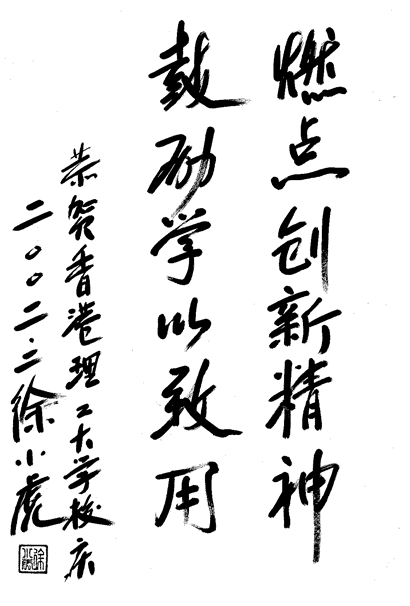 燃点创新精神
鼓励学以致用
恭贺香港理工大学校庆
二〇〇二.二 徐小虎